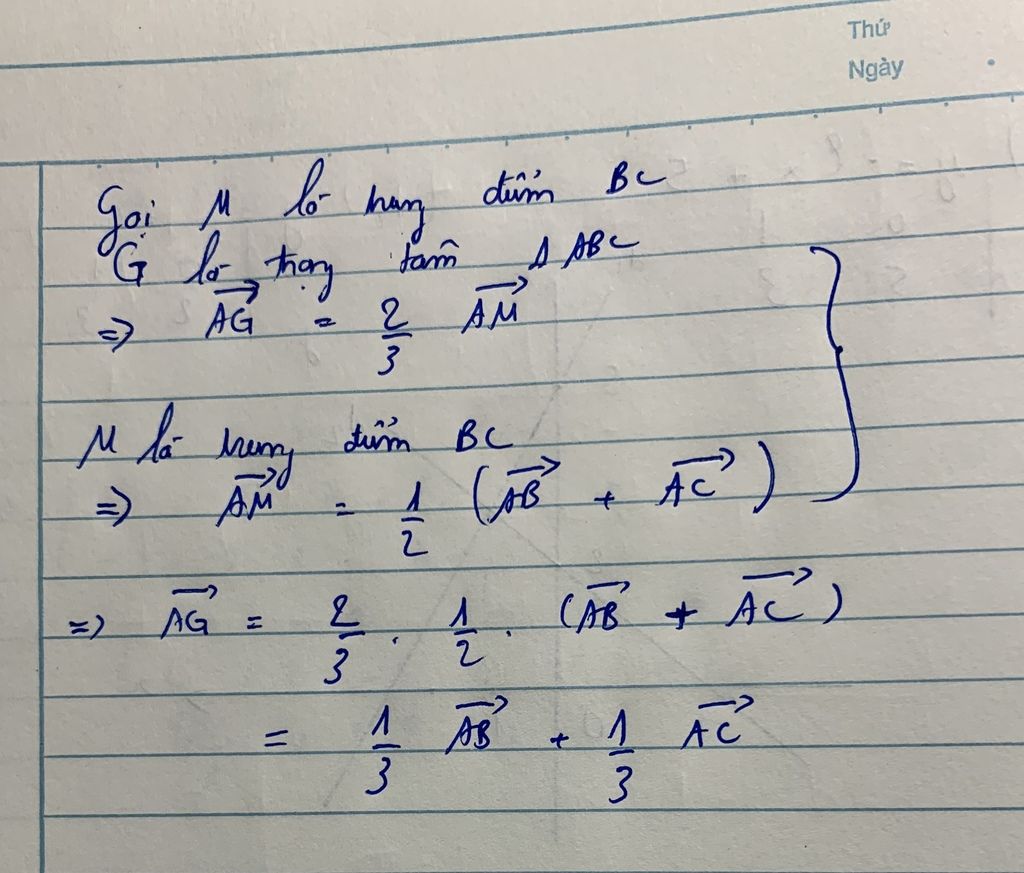 Thứ
Ngày
Gọi M là trung điểm BC
G là trọng tâm Δ ABC
=> \overrightarrow{AG} = \frac{2}{3} \overrightarrow{AM}
M là trung điểm BC
=> \overrightarrow{AM} = \frac{1}{2} (\overrightarrow{AB} + \overrightarrow{AC})
=> \overrightarrow{AG} = \frac{2}{3} . \frac{1}{2} . (\overrightarrow{AB} + \overrightarrow{AC})
= \frac{1}{3} \overrightarrow{AB} + \frac{1}{3} \overrightarrow{AC}